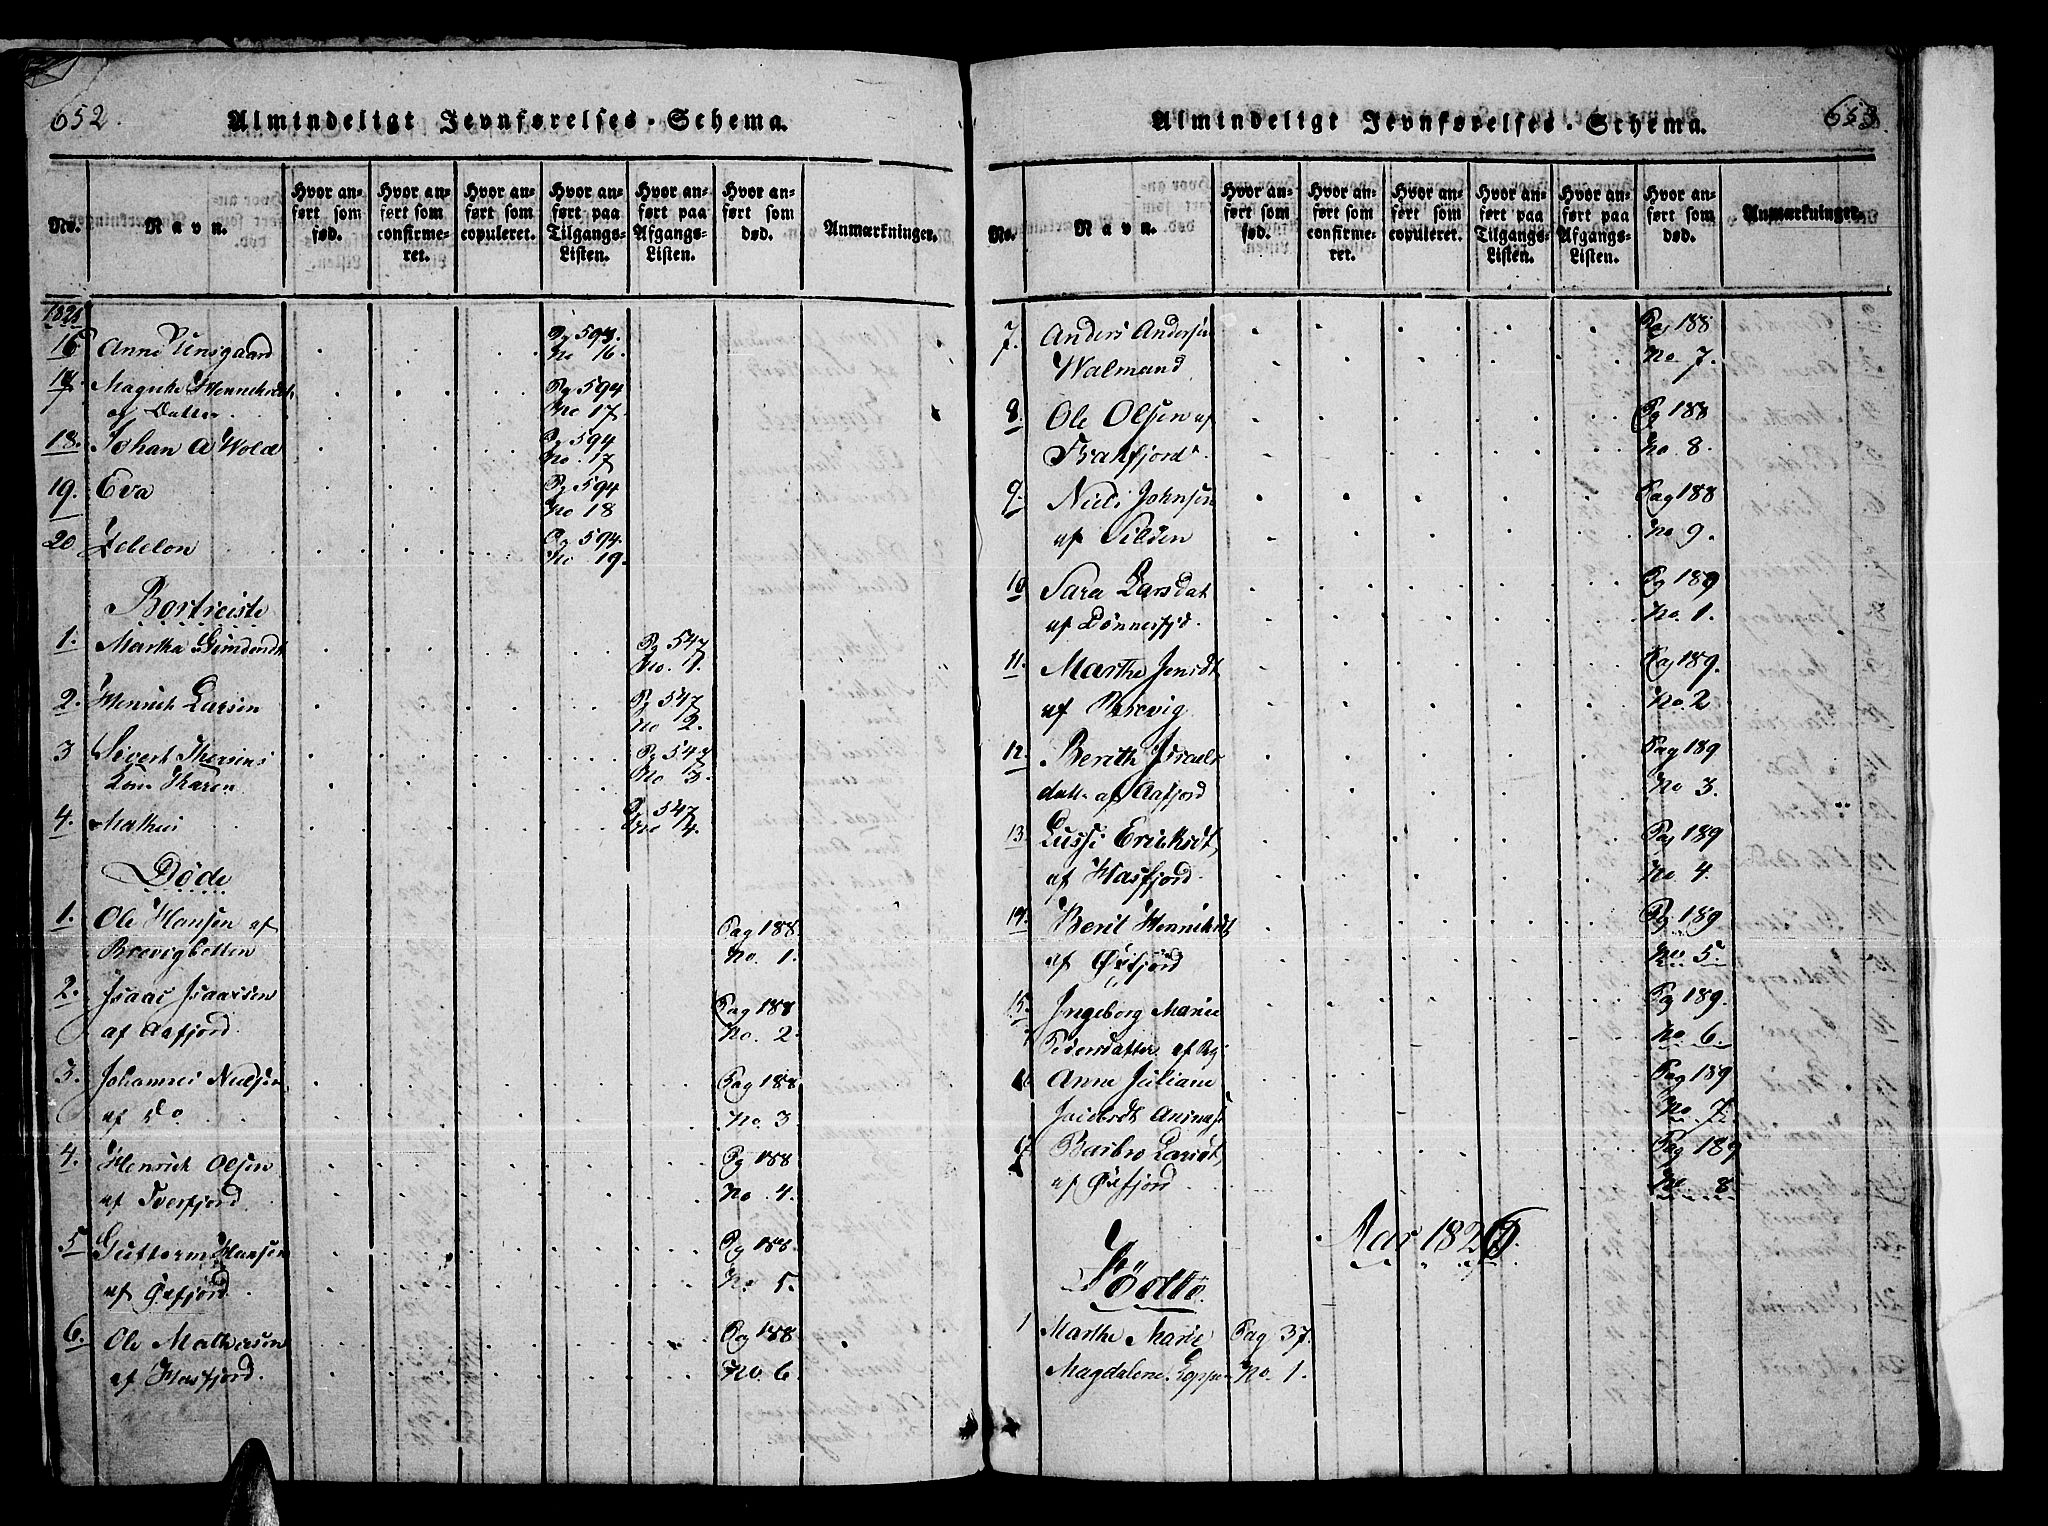 652.
Almindeligt Jevnførelses-Schema.
No.
Navn.
Hvor an-
ført som
fød.
Hvor an-
ført som
confirme-
ret.
Hvor an-
ført som
copuleret.
Hvor an-
ført paa
Tilgangs-
Listen.
Hvor an-
ført paa
Afgangs-
Listen.
Hvor an-
ført som
død.
Anmærkninger.
16 Anne Pg 593.
No 16.
17. Pg 594
og Datter No 17.
18. Johan A Wold Pg 594
No. 17
19. Eva Pg 594
No 18
20 Zebelon Pg 594.
No. 19.
Bortreiste
1. Martha Pg 547
No. 1.
2. Henrich Larsen Pg 547
No 2.
3 Sivert Iversens Pg 547
Kone Karen No 3.
4. Mathis Pg 547
No 4.
Døde
1. Ole Hansen af Pag 188.
Brevigbotten No. 1.
2. Isaac Isaacsen Pag 188
af Aafjord No. 2.
3. Johannes Nielsen Pag 188
af do No. 3
4. Henrich Olsen Pg 188
af Tverfjord No. 4.
5 Guttorm Hansen Pg 188.
af Øxfjord No. 5.
6. Ole Mathesen Pg 188
af Hasfjord No. 6
Almindeligt Jevnførelses-Schema.
653.
No.
Navn.
Hvor an-
ført som
fød.
Hvor an-
ført som
confirme-
ret.
Hvor an-
ført som
copuleret.
Hvor an-
ført paa
Tilgangs-
Listen.
Hvor an-
ført paa
Afgangs-
Listen.
Hvor an-
ført som
død.
Anmærkninger.
7. Anders Andersen Pag 188
Walmand No. 7.
8. Ole Olsen af Pg 188
Frakfjord No 8.
9. Niels Johnsen Pag 188
af Silden No 9.
10 Sara Larsdat Pg 189
af Lønnesfjd. No. 1.
11. Marthe Jensdt Pag 189.
af Brevig No. 2
12. Berith Israels Pag 189
datt. af Aafjord No 3.
13. Lussi Ericksdt Pag 189
af Hasfjord No. 4.
14. Berit Henrichsdt Pg 189
af Øxfjord No 5.
15. Ingeborg Marie Pg 189.
Pedersdatter af No. 6.
16 Anne Juliane Pag 189
No. 7.
17 Barbro Larsdt Pag 189
af Øxfjord No 8.
Aar 1826.
Födte.
1 Marthe Marie Pag 37.
Magdalene No. 1.